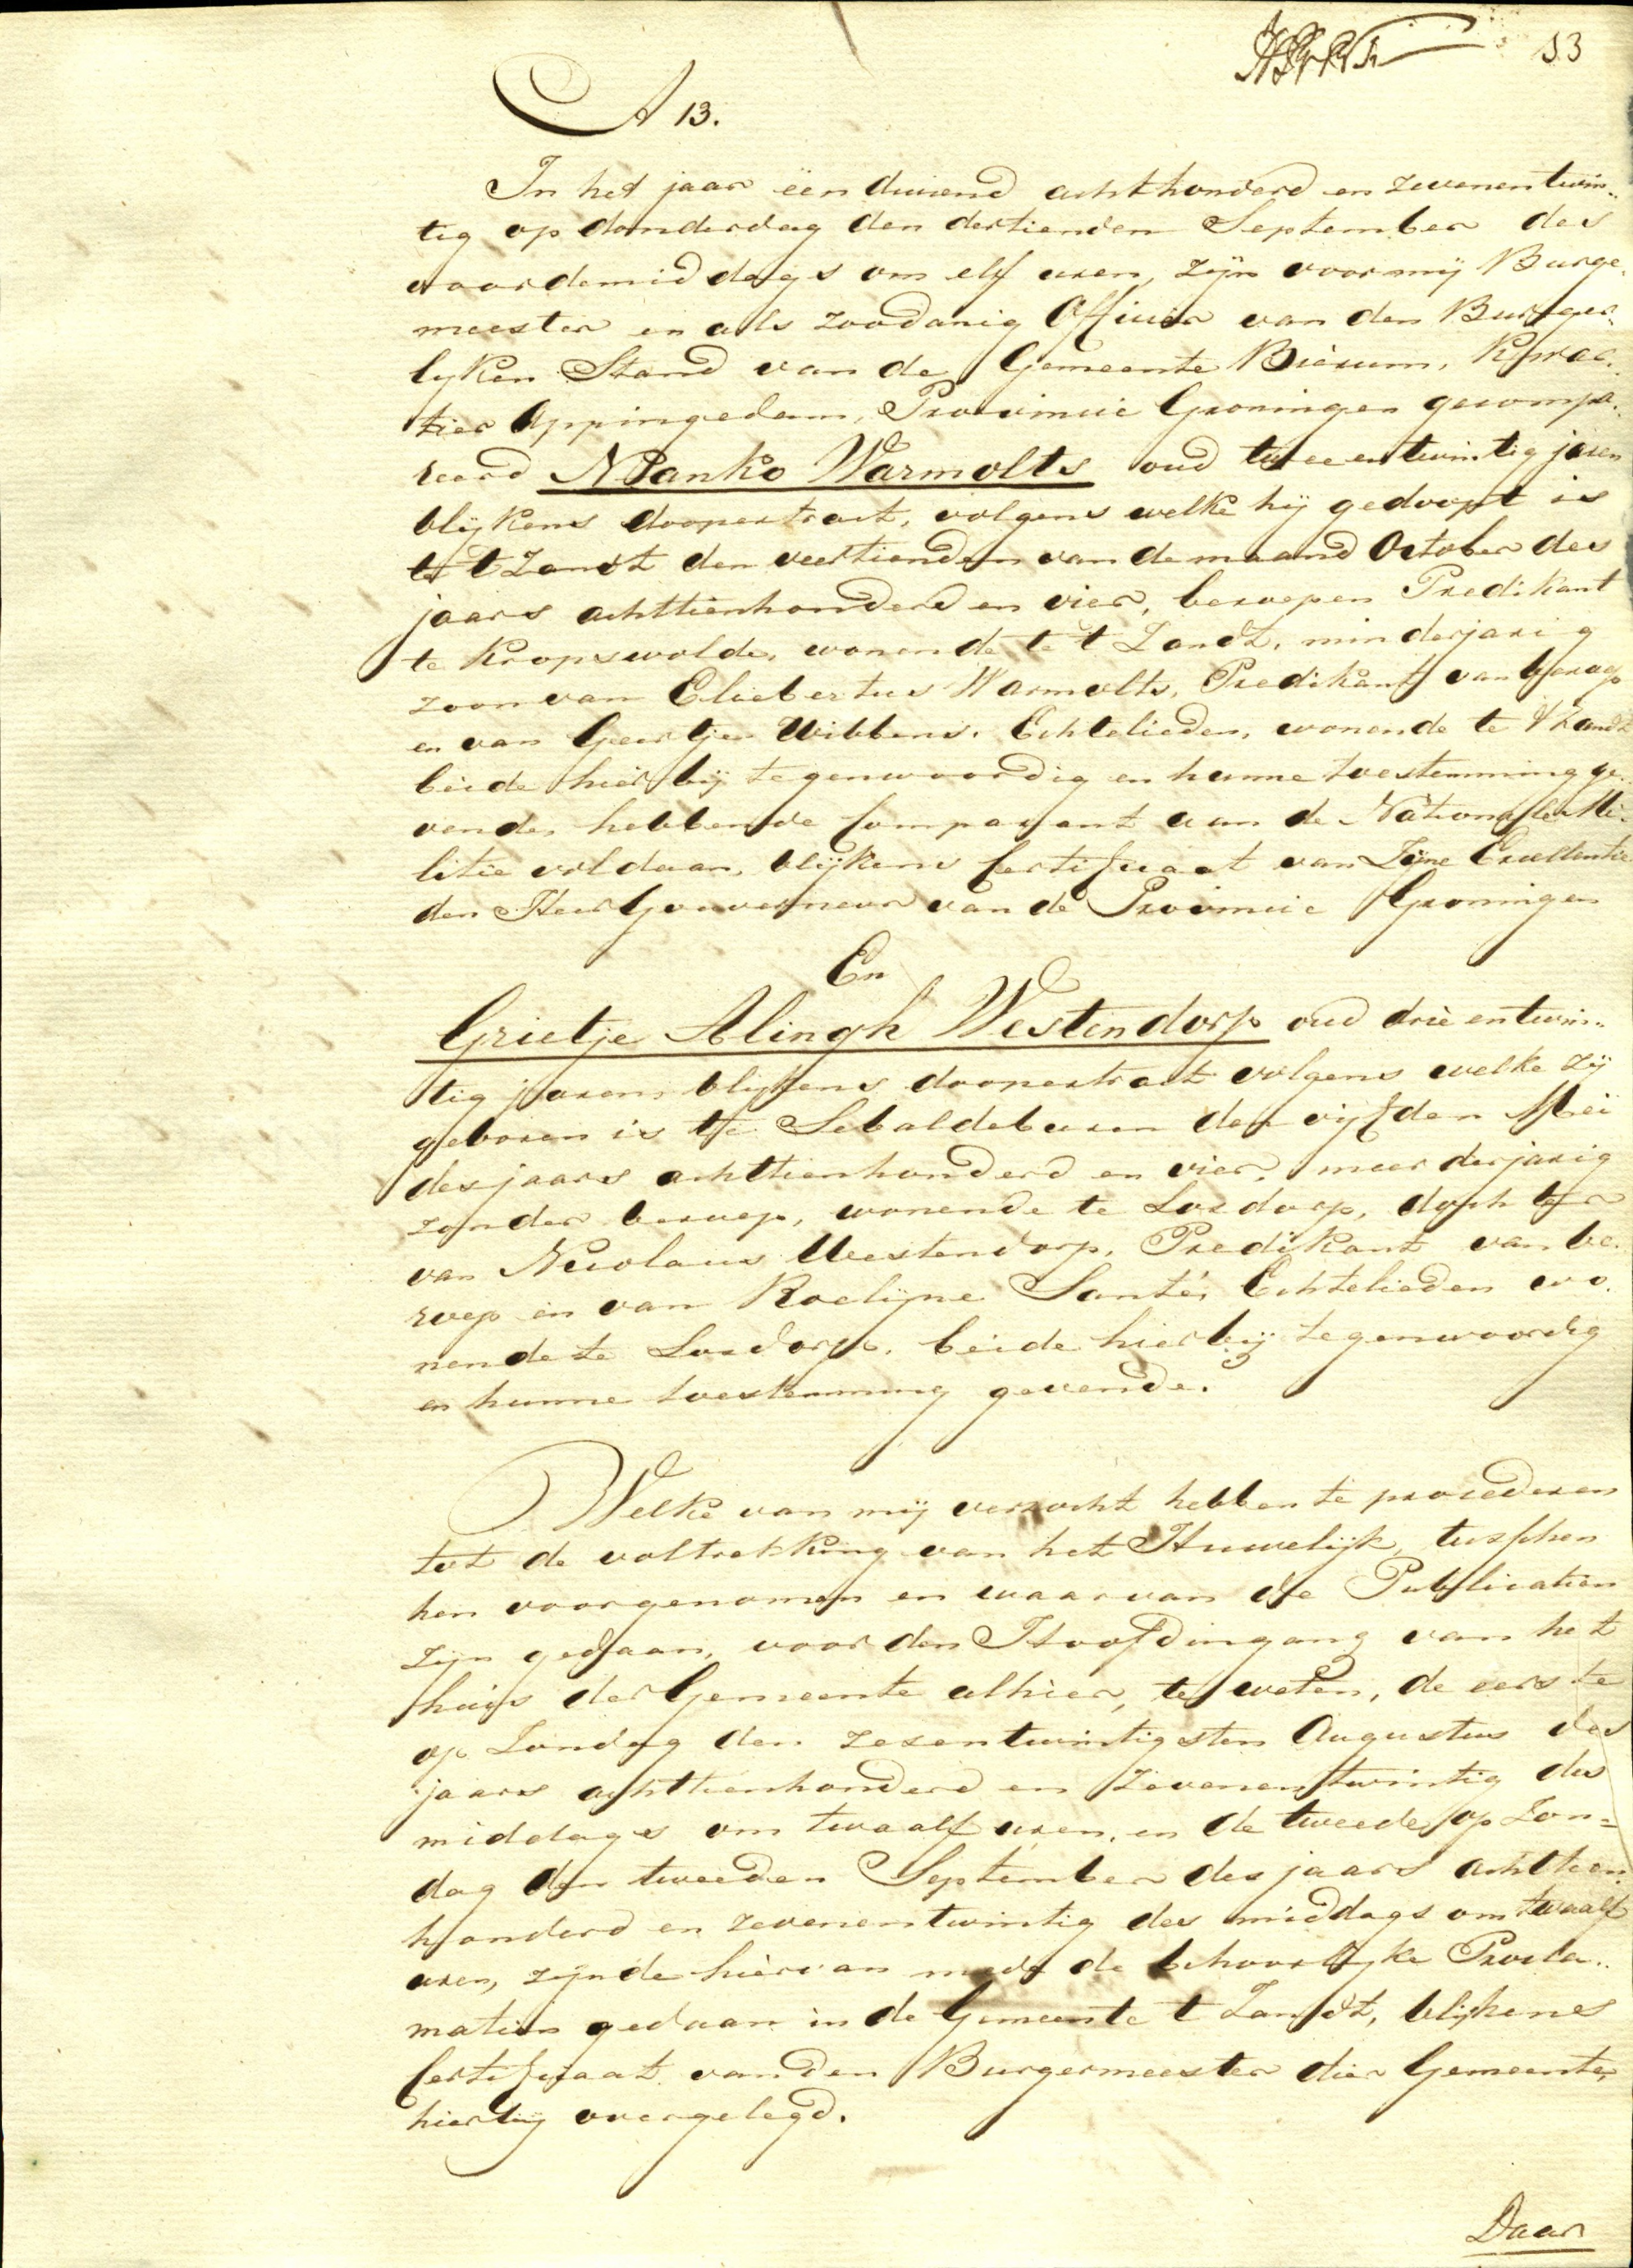 13
A 13.
In het jaar een duizend achthonderd en zevenentwin-
tig op donderdag den dertienden September des
voordemiddags om elf uren, zijn voor mij Burge-
meester en als zoodanig Officier van den Burger-
lyken Stand van de Gemeente Bierum, Kwar-
tier Appingedam, Provincie Groningen gecompa-
reerd Nanko Warmolts oud twee en twintig jaren
blijkens doopextract, volgens welke hij gedoopt is
te t Zandt den veertienden van de maand October des
jaars achttienhonderd en vier, beroepen Predikant
te Kropswolde, wonende te t Zandt, minderjarig
zoon van Eliebertus Warmolts, Predikant van beroep
en van Geertje Wibbens, Echtelieden, wonende te t Zandt
beide hier bij tegenwoordig en hunne toestemming ge-
vende, hebbende Comparant aan de Nationale Mi-
litie voldaan, blijkens Certificaat van Zijne Excellentie
den Heer Gouverneur van de Provincie Groningen
En
Grietje Alingh Westendorp oud drie en twin-
tig jaren, blijkens doopextract volgens welke zij
geboren is te Sebaldeburen den vijfden Mei
des jaars achttienhonderd en vier, meerderjarig
zonder beroep, wonende te Losdorp, dochter
van Nicolaus Westendorp, Predikant van be-
roep en van Roelijne Santé, Echtelieden wo-
nende te Losdorp, beide hierbij tegenwoordig
en hunne toestemming gevende.
Welke van mij verzocht hebben te procederen
tot de voltrekking van het Huwelijk, tusschen
hen voorgenomen en waarvan de Publicatien
zijn gedaan, voor den Hoofdingang van het
huis der Gemeente alhier, te weten, de eerste
op Zondag den zesentwintigsten Augustus des
jaars achttienhonderd en zevenentwintig des
middags om twaalf uren, en de tweede op Zon=
dag den tweeden September des jaars achttien-
honderd en zevenentwintig des middags om twaalf
uren, zijnde hiervan mede de behoorlyke Procla-
matien gedaan in de Gemeente t Zandt, blijkens
Certificaat van den Burgermeester dier Gemeente,
hierbij overgelegd.
Daar